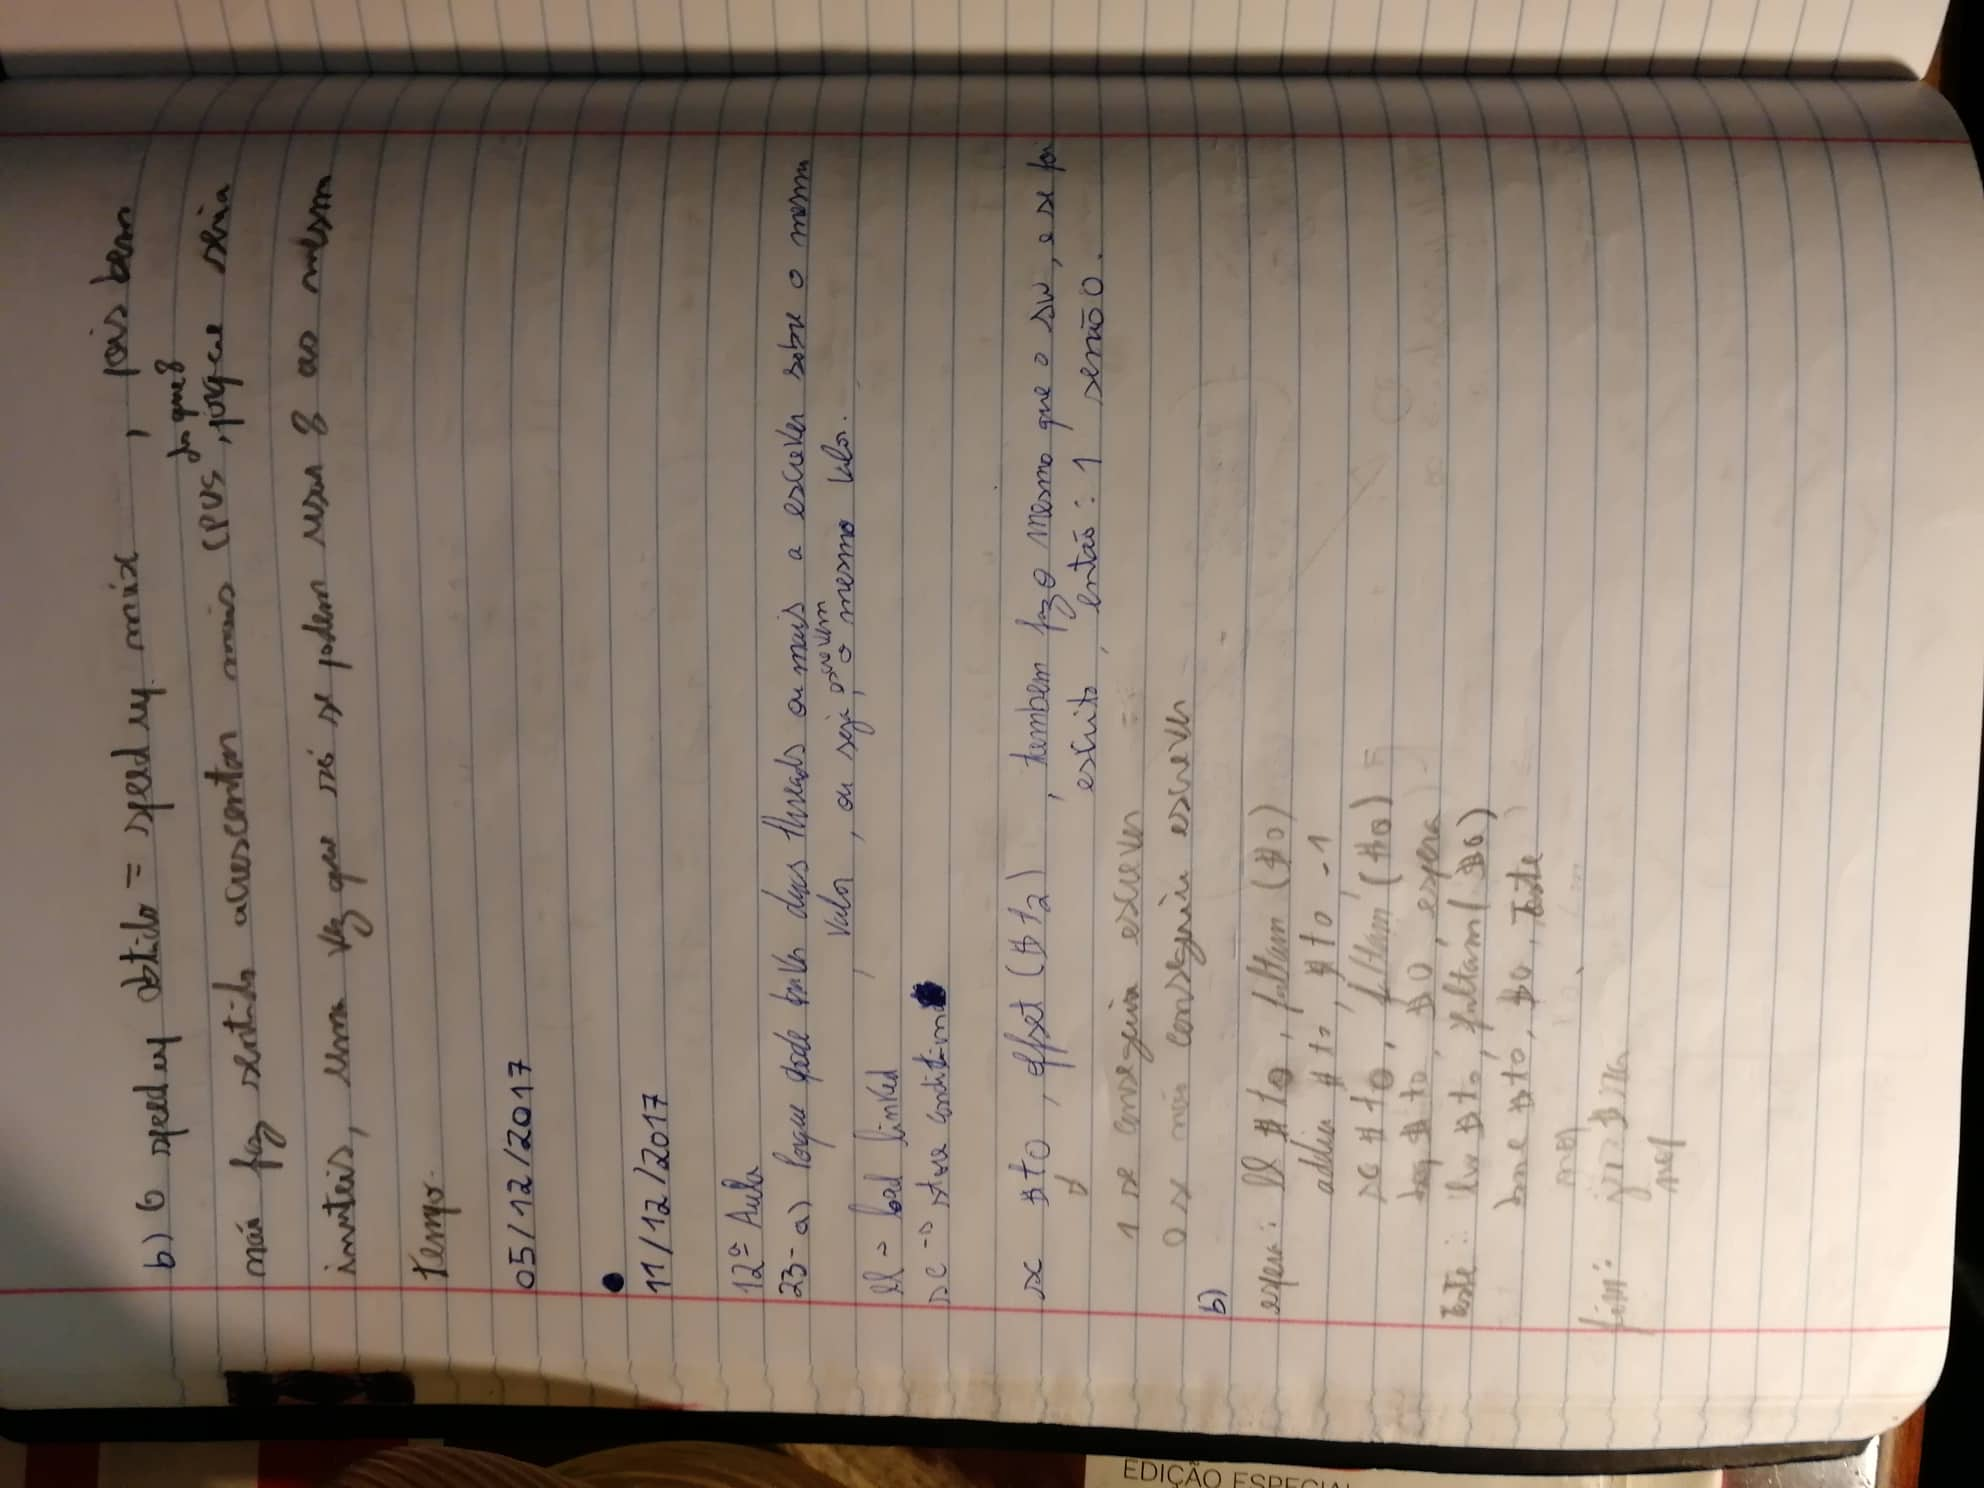 b) O speedup obtido = speedup máx, pois bem
não faz sentido acrescentar mais CPUS do que 8, porque seria
inuteis, uma vez que só se podem usar 8 ao mesmo
tempo.
05/12/2017
11/12/2017
12ª Aula
23- a) Porque pode haver duas threads ou mais a escrever sobre o mesmo
valor, ou seja, escrevem o mesmo valor.
ll → load linked
sc → store conditional
sc $t0, offset($t2), tembem faz o mesmo que o sw, e se foi
escrito, então: 1 senão 0.
1 se conseguiu escrever
0 se não conseguiu escrever
b)
espera: ll $t0, faltam($0)
addiu $t0, $t0 -1
sc $t0, faltam($0)
beq $t0, $0, espera
Teste: lw $t0, faltam($0)
bne $t0, $0, Teste
nop
fim: jr $ra
nop
EDIÇÃO ESPECIAL